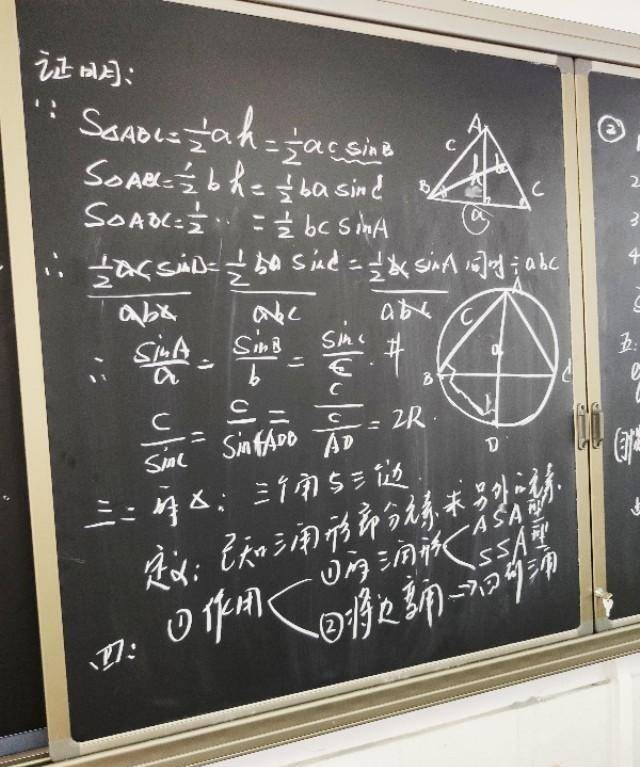 证明:
∵ S△ABC=½ah=½acsinB
S△ABC=½bh=½basinC
S△ABC=½··=½bcsinA
∴ ½acsinB/abc=½ba sinC/abc=½bc sinA/abc 同时÷abc
∴ sinA/a=sinB/b=sinC/c.#
c/sinC=c/sin∠ADB=c/(c/AD)=2R.
三:解△:三个角与三边
定义:已知三角形部分元素,求另外元素.
四:①作用
①解三角形
ASA型
SSA型
②将边弯角→回到三角
A
c
h
B
C
a
A
c
B
C
D
②
1
2
3
4
五: